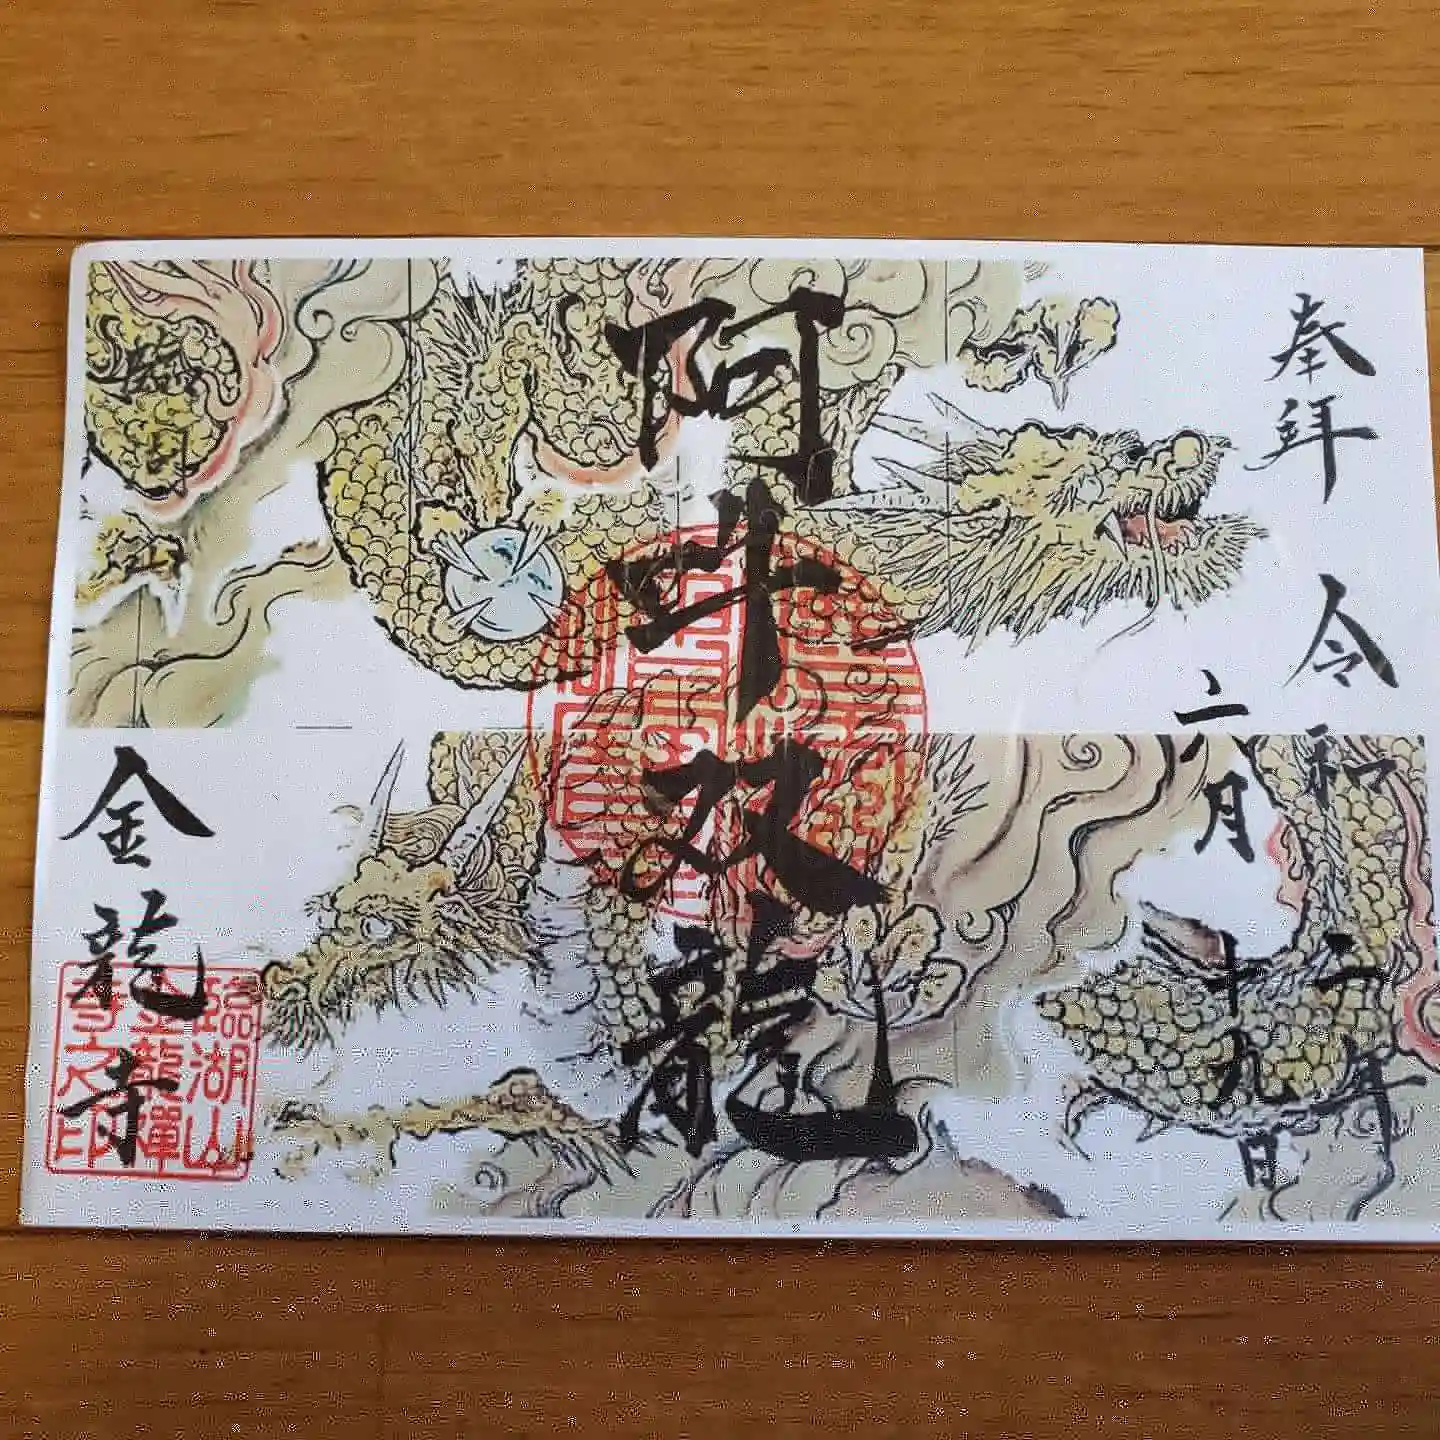 奉拝
令和二年
六月十九日
阿吽双龍
臨湖山
金龍寺
臨湖山
金龍禪
寺之印